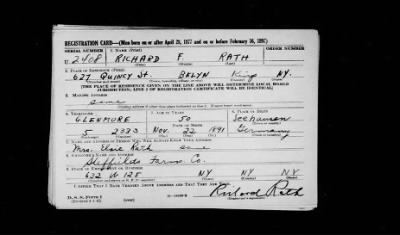 REGISTRATION CARD—(Men born on or after April 28, 1877 and on or before February 16, 1897)
SERIAL NUMBER 1. NAME (Print) ORDER NUMBER
U 2408 RICHARD F RATH
2. PLACE OF RESIDENCE (Print)
627 Quincy St. BKLYN King NY.
[THE PLACE OF RESIDENCE GIVEN ON THE LINE ABOVE WILL DETERMINE LOCAL BOARD
JURISDICTION; LINE 2 OF REGISTRATION CERTIFICATE WILL BE IDENTICAL]
3. MAILING ADDRESS
same
4. TELEPHONE 5. AGE IN YEARS 6. PLACE OF BIRTH
GLENMORE 50
5 2333 Nov. 22 1891 Germany
7. NAME AND ADDRESS OF PERSON WHO WILL ALWAYS KNOW YOUR ADDRESS
Mrs. Elsie Rath same
8. EMPLOYER'S NAME AND ADDRESS
Sheffield Farms Co.
9. PLACE OF EMPLOYMENT OR BUSINESS
632 W 125 NY NY NY
I AFFIRM THAT I HAVE VERIFIED ABOVE ANSWERS AND THAT THEY ARE TRUE.
D. S. S. Form 1
Richard Rath